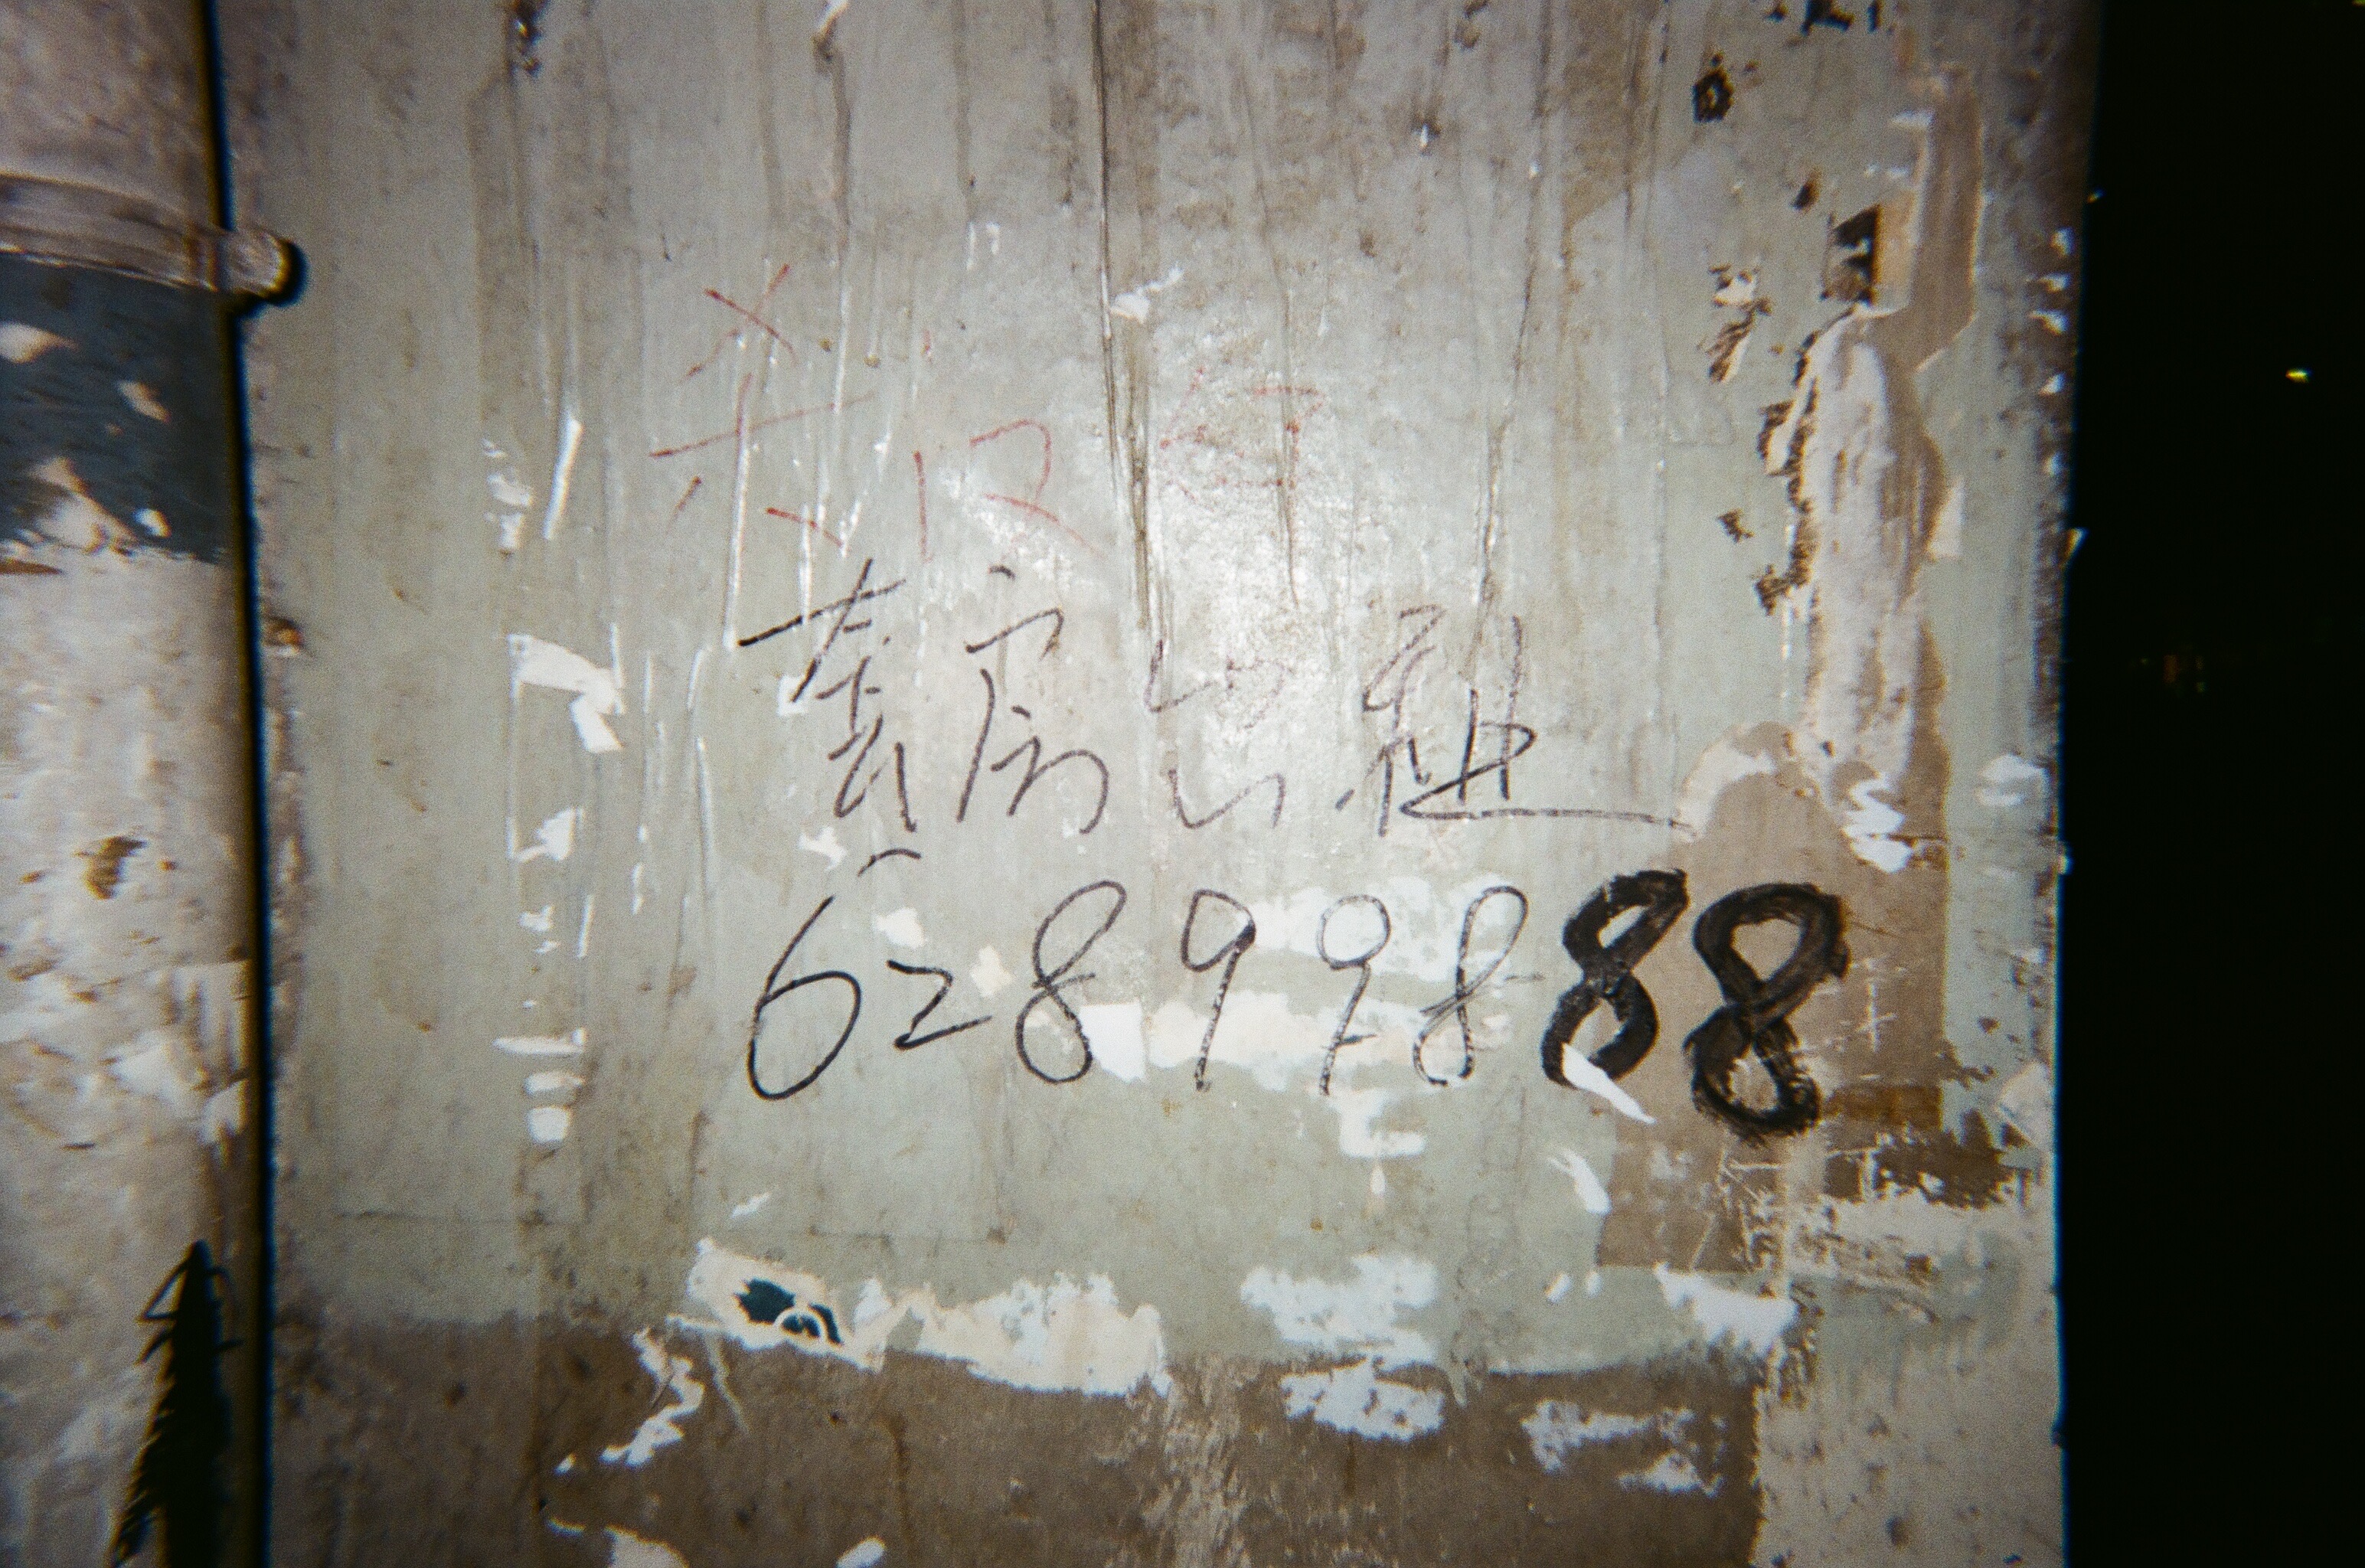 套房出租
62899888